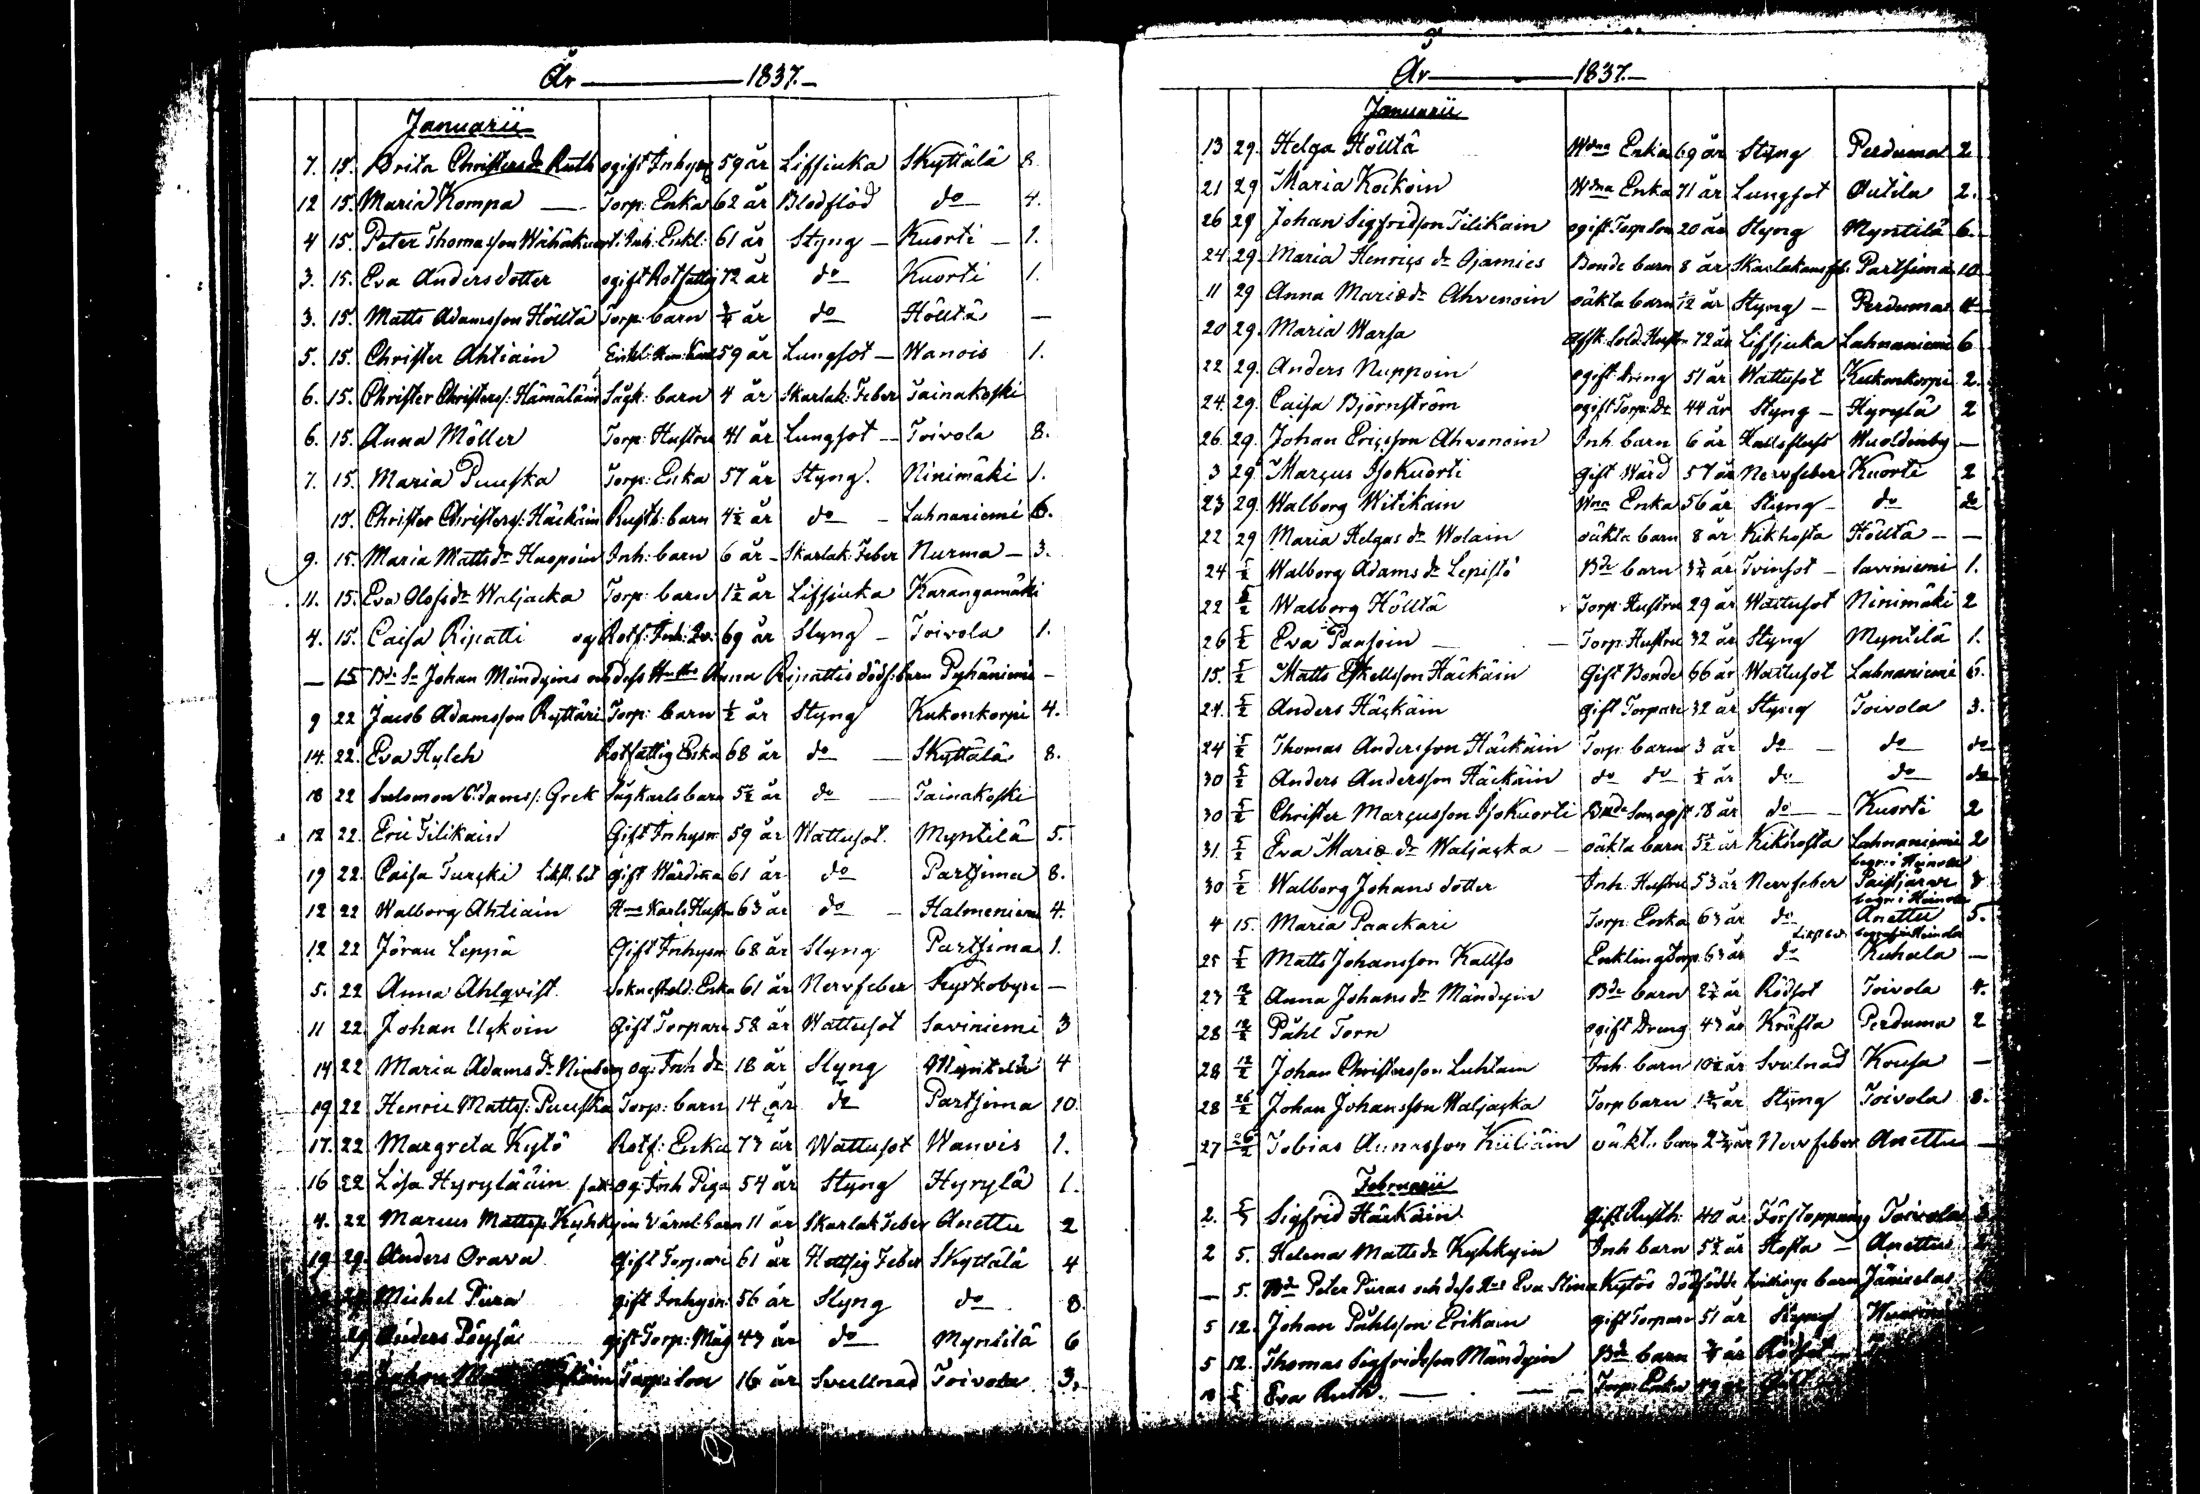 År 1837.
Januarii
7. 15. Brita Christersdr Ruth ogift Inhys 59 år Lissjuka Skyttälä 8.
12 15. Maria Kompa Torp: Enka 62 år Blodflöd do 4.
4 15. Peter Thomasson Inh: Enkl: 61 år Styng Kuorti 1.
3. 15. Eva Andersdotter ogift Rotfattig 72 år do Kuorti 1.
3. 15. Matts Adamsson Höltä Torp: barn 3/4 år do Höltä —
5. 15. Christer Ahtiain 59 år Lungsot Wanois 1.
6. 15. Christer Christers: Hämäläin Sågk: barn 4 år Skarlak: Feber Tainakoski
6. 15. Anna Möller Torp: Hustru 41 år Lungsot Toivola 8.
7. 15. Maria Puuska Torp: Enka 57 år Styng. Ninimäki 1.
15. Christer Christers: Häckäin Rusth: barn 4 1/2 år do Lahnaniemi 6.
9. 15. Maria Mattsdr Haapoin Inh: barn 6 år Skarlak: Feber Nurma 3.
11. 15. Eva Olofsdr Waljacka Torp: barn 1 1/2 år Lissjuka Karangamäki
4. 15. Caisa Ripatti og Rotf: Inh: 69 år Styng Toivola 1.
— 15 Bde Sn Johan Mändyins och dess Hustru Anna Ripattis dödf: barn Pyhäniemi —
9 22 Jacob Adamsson Ryttäri Torp: barn 1/2 år Styng Kukonkorpi 4.
14. 22. Eva Hylch Rotfattig Enka 68 år do Skyttälä 8.
18 22 Salomon Adams: Grek Sågkarls barn 5 1/2 år do Tainakoski
12 22. Eric Tilikain Gift Inhysn 59 år Wattusot. Myntilä 5.
19 22. Caisa Turcki gift Wärdinna 61 år do Partsima 8.
12 22 Walborg Ahtiain Karls Hustru 63 år do Halmeniemi 4.
12 22 Jöran Leppä Gift Inhysn 68 år Styng Partsima 1.
5. 22 Anna Ahlqvist Enka 61 år Nervfeber Kyrkobyn —
11 22. Johan Uckoin Gift Torpare 58 år Wattusot Saviniemi 3
14 22 Maria Adamsdr og: Inh dr 18 år Styng Myntilä 4
19 22 Henric Matts: Puuska Torp: barn 14 år do Partsima 10
17. 22 Margreta Kytö Rotf: Enka 73 år Wattusot Wanois 1.
16 22 Lisa Hyryläin og: Inh Piga 54 år Styng Hyrylä 1.
4. 22 Marcus Mattsp. Kyhkyin barn 11 år Skarlak Feber Anettu 2
19 29. Anders Orava Gift Torpare 61 år Hettsig Feber Skyttälä 4
Michel Pura gift Inhysn 56 år Styng do 8.
29 Anders Pöysä gift Torp: Måg 43 år do Myntilä 6
Johan Torpe Son 16 år Svullnad Toivola 3.
År 1837.
Januarii
13 29. Helga Höltä Enka 69 år Styng Perduma 2
21 29 Maria Kockoin Enka 71 år Lungsot Outila 2.
26 29 Johan Sigfridson Tilikain ogift Torp Son 20 år Styng Myntilä 6.
24 29. Maria Henrics dr Ojamies Bonde barn 8 år Skarlakansfeb. Partsima 10
11 29 Anna Mariæ dr Ahvenoin oäkta barn 1/12 år Styng Perduma 4
20 29. Maria Warsa Afsk. Sold. Hustru 72 år Lissjuka Lahnaniemi 6
22 29. Anders Nuppoin ogift Dreng 51 år Wattusot Kukonkorpi 2.
24. 29. Caisa Björnström ogift Torp: Dr 44 år Styng Hyrylä 2
26. 29. Johan Ericsson Ahvenoin Inh. barn 6 år Hallsfluss —
3 29. Marcus IsoKuorti gift Wärd 57 år Nervfeber Kuorti 2
23 29. Walborg Witikain Enka 56 år Styng do do
22 29 Maria Helgas dr Wolain oäkta barn 8 år Kikhosta Höltä —
24 5/2 Walborg Adams dr Lepistö Bde barn 3 1/2 år Tvinsot Saviniemi 1.
22 5/2 Walborg Höltä Torp: Hustru 29 år Wattusot Ninimäki 2
26 5/2 Eva Paasoin Torp: Hustru 32 år Styng Myntilä 1.
15. 5/2 Matts Eskellsson Häckäin Gift Bonde 66 år Wattusot Lahnaniemi 6.
24. 5/2 Anders Häckäin gift Torpare 32 år Styng Toivola 3.
24 5/2 Thomas Andersson Häckäin Torp: barn 3 år do do do
30 5/2 Anders Andersson Häckäin do do 1/2 år do do do
30 5/2 Christer Marcusson IsoKuorti Bnde Son ogift 18 år do Kuorti 2
31. 5/2 Eva Mariæ dr Waljacka oäkta barn 5 1/2 år Kikhosta Lahnaniemi 2
30 5/2 Walborg Johans dotter Inh: Hustru 53 år Nervfeber begr: i Heinola Paistjärvi 8
4 15. Maria Paackari Torp: Enka 63 år do begr: i Heinola Anettu 5.
25 5/2 Matts Johansson Kallso Enkling Torp. 63 år do begr: i Heinola —
27 12/2 Anna Johans dr Mändyin Bde barn 2 3/4 år Rödsot Toivola 4.
28 12/2 Påhl Torn ogift Dreng 43 år Kräfta Perduma 2
28 12/2 Johan Christersson Luhtain Inh. barn 10 1/2 år Svulnad Kousa —
28 26/2 Johan Johansson Waljacka Torp barn 1 3/4 år Styng Toivola 8.
27 26/2 Tobias Annasson Kiiliäin oäkta barn 2 3/4 år Nervfeber Anettu —
Februarii
2. 5/2 Sigfrid Häckäin Gift Rusth: 40 år Förstoppning Toivola 3
2 5. Helena Matts dr Kyhkyin Inh barn 5 1/2 år Hosta Anettu
— 5. Bde Peter Puras och dess Hu Eva Stina Kytös dödfödde tvillinge barn
5 12. Johan Påhlsson Erikain gift Torpare 51 år Styng
5 12. Thomas Sigfridsson Mändyin Bde barn 3/4 år Rödsot
5/2 Eva Ruth. Torp: Enka